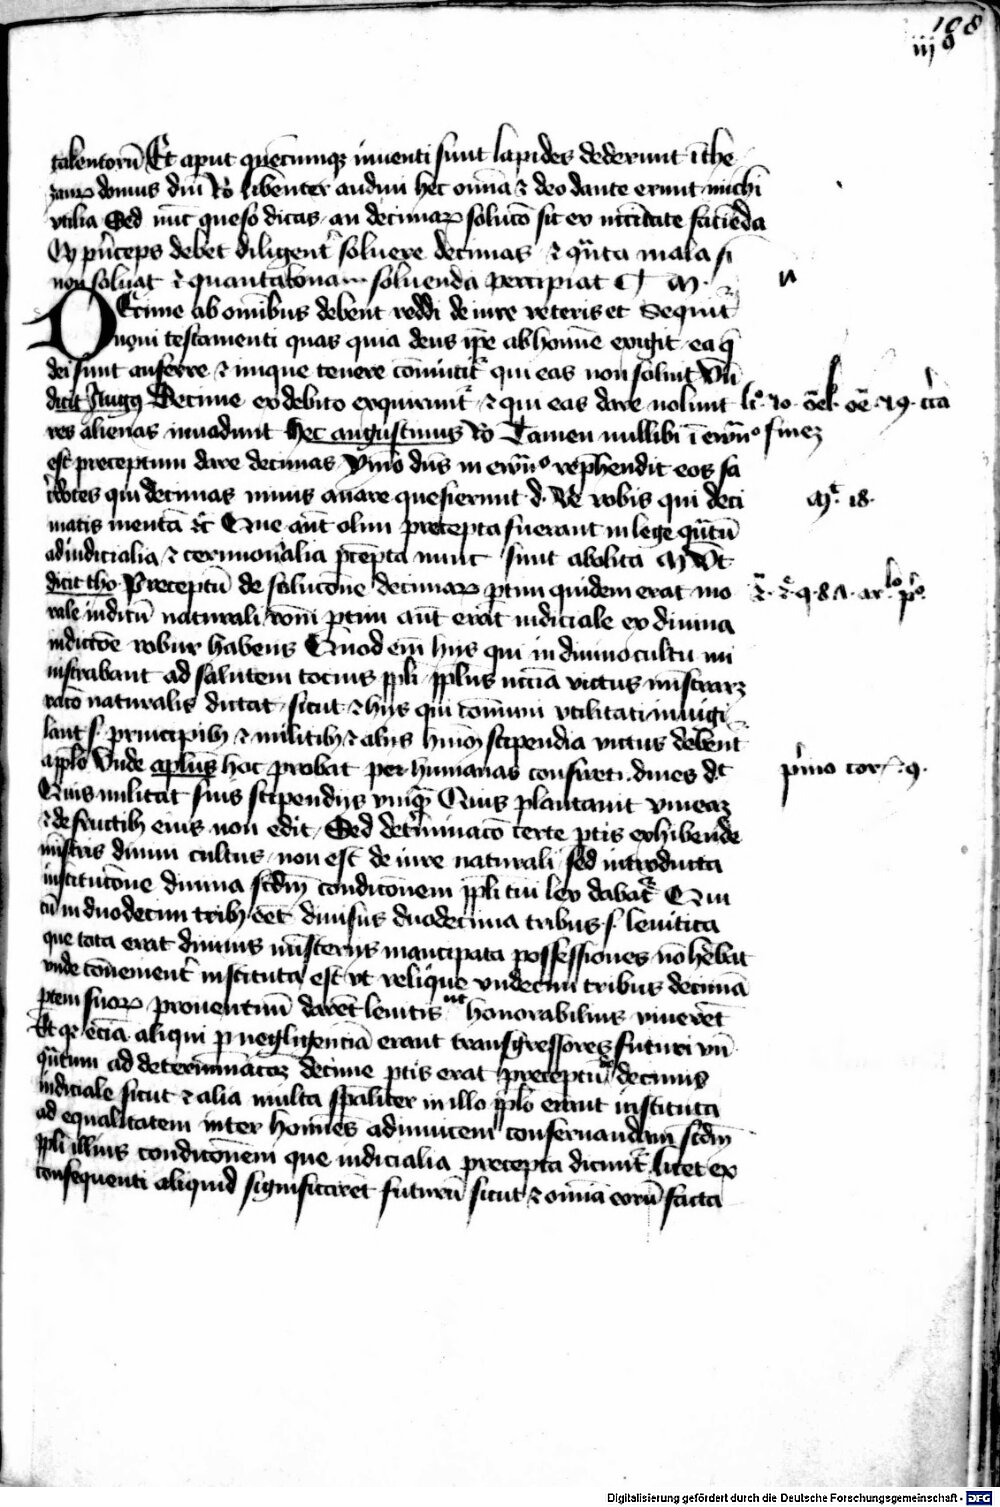 108
iij 9
talentorū Et aput quecumqꝫ inuenti sunt lapides dederunt ī the
zauꝝ domus dn̄i Rō libenter audiui hec om̄ia ⁊ deo dante erunt michi
vtilia Sed nūc queso dicas an decimaꝝ soluco͞ sit ex nc̄citate facie͞da
Qꝫ p͛nceps debet diligent͛ soluere decimas ⁊ qͣnta mala sī
non soluat ⁊ quanta bona soluenda percipiat C M
n
DEcime ab om̄ibus debent reddi de iure veteris et Sequit͛
noui testamenti quas quia deus ip̄e ab homīe exigit ea q̄
dei sunt auferre ⁊ inique tenere co͞uincit͛ qui eas non soluit Vn̄
dicit Augꝰ Decime ex debito exquirunt͛ ⁊ qui eas dare nolunt
res alienas inuadunt Hec augustinus Rō Tamen nullibi ī ewn̄º
finez
est preceptum dare decimas ymo dn̄s in ewn̄º rep̄hendit eos sa
c͛dotes qui decimas nimis auare quesierunt d. Ve vobis qui deci
Mͭ 18.
matis mentā ⁊c̄ Que aūt olim precepta fuerant in lege qͣntū
ad iudicialia ⁊ cerimonialia p̄cepta nunc sunt abolita M Vt
dicit tho. Preceptū de soluco͞ne decimaꝝ ptim quidem erat mo
rale inditū naturali rōni ptim aūt erat iudiciale ex diuina
indicto͞e robur habens Quod em̄ hijs qui in diuino cultu mi
nistrabant ad salutem tocius pp̄li pp̄lus nc̄cia victus mīstrarꝫ
racō naturalis dictat sicut ⁊ hijs qui com̄uni vtilitati inuigi
lant s. principibꝫ ⁊ militibꝫ ⁊ alijs hmōi stipendia victus debent͛
a pp̄lo vnde ap̄lus hoc probat per humanas consuetudines d͛t
p͛mo cor̄. 9.
Quis militat suis stipendijs vmqͣ Quis plantauit vineaꝫ
⁊ de fructibꝫ eius non edit Sed det͛minacō certe ptis exhibende
mīstris diuini cultus non est de iure naturali sed introducta
institucōne diuina scd̄m condicōnem pp̄li cui lex dabat͛ Qui
cū in duodecim tribꝫ eēt diuisus duodecima tribus s. leuitica
que tota erat diuinis mīsterijs mancipata possessiones nō hēbat
vnde co͞uenient͛ instituta est vt relique vndecim tribus decimā
ptem suoꝝ prouentuū darēt leuitis vt honorabilius viuerēt
Et qꝛ eciā aliqui p negligenciā erant transgressores futuri vn̄
qͣntum ad determinacōꝫ decime ptis erat preceptū de decimis
iudiciale sicut ⁊ alia multa sp̄aliter in illo pp̄lo erant instituta
ad equalitatem inter homīes adinuicem conseruandam scd̄m
pp̄li illius condicōnem que iudicialia precepta dicunt͛ licet ex
consequenti aliquid significarēt futurū sicut ⁊ om̄ia eorū facta
Digitalisierung gefördert durch die Deutsche Forschungsgemeinschaft - DFG